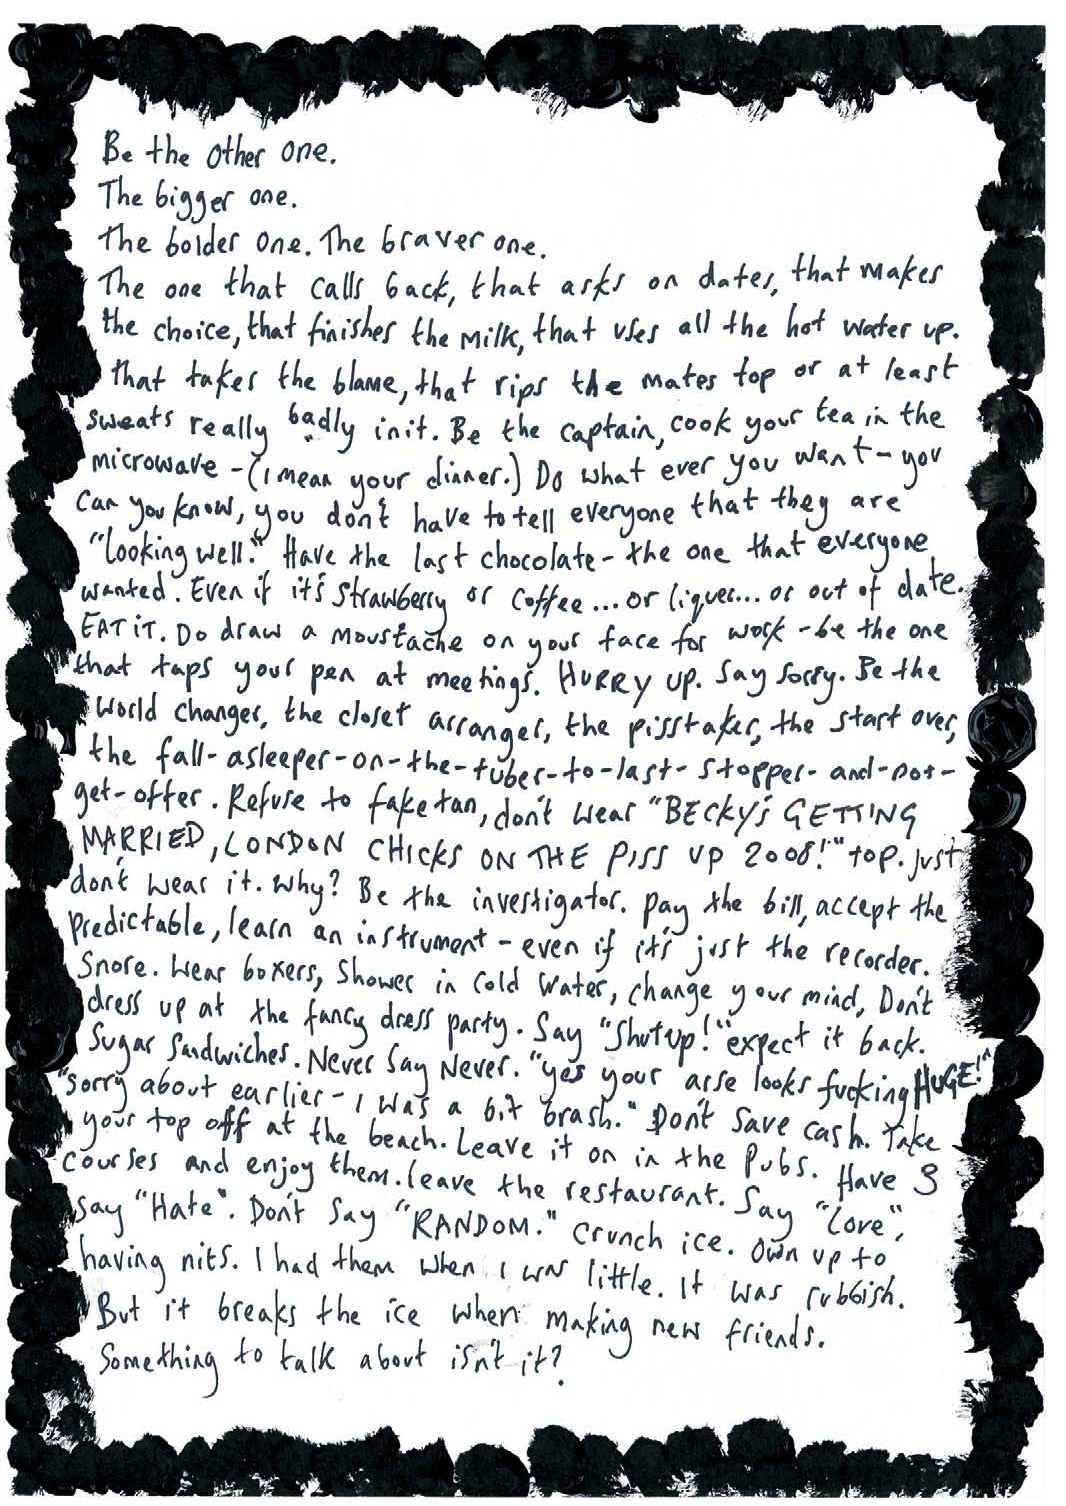 Be the other one.
The bigger one.
The bolder one. The braver one.
The one that calls back, that asks on dates, that makes
the choice, that finishes the milk, that uses all the hot water up.
That takes the blame, that rips the mates top or at least
sweats really badly init. Be the captain, cook your tea in the
microwave - (I mean your dinner.) Do what ever you want - you
can you know, you don't have to tell everyone that they are
"looking well." Have the last chocolate - the one that everyone
wanted. Even if it's strawberry or coffee... or liquer... or out of date.
EAT iT. Do draw a moustache on your face for work - be the one
that taps your pen at meetings. HURRY UP. Say sorry. Be the
world changer, the closet arranger, the pisstaker, the start over,
the fall-asleeper-on-the-tuber-to-last-stopper-and-not-
get-offer. Refuse to fake tan, don't wear "BECKY'S GETTING
MARRIED, LONDON CHICKS ON THE PISS UP 2008!" top. Just
don't wear it. Why? Be the investigator. Pay the bill, accept the
predictable, learn an instrument - even if it's just the recorder.
Snore. Wear boxers, Shower in cold water, change your mind, Don't
dress up at the fancy dress party. Say "Shutup!" expect it back.
Sugar Sandwiches. Never Say Never. "yes your arse looks fucking HUGE!"
"sorry about earlier - I was a bit brash." Don't save cash. Take
your top off at the beach. Leave it on in the Pubs. Have 3
courses and enjoy them. Leave the restaurant. Say "Love",
say "Hate". Don't Say "RANDOM." Crunch ice. Own up to
having nits. I had them when I was little. It was rubbish.
But it breaks the ice when making new friends.
Something to talk about isn't it?